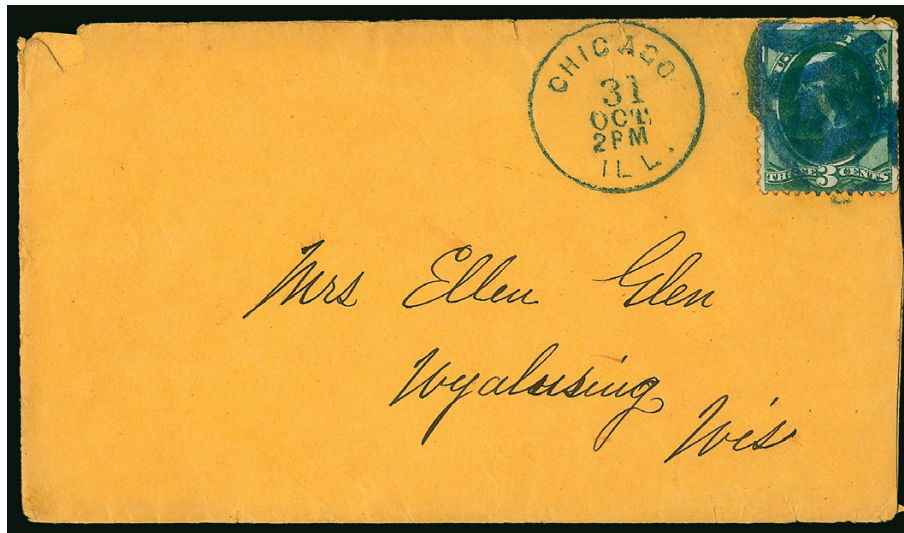 CHICAGO
31
OCT.
2PM
ILL.
THREE 3 CENTS
Mrs Ellen Glen
Wyalusing
Wis